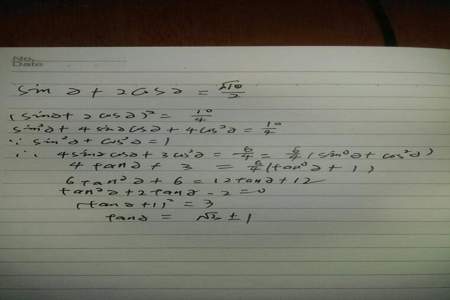 No.
Date
sin ∂ + 2cos ∂ = √10/2
(sin∂ + 2 cos ∂)² = 10/4
sin²∂ + 4 sin∂ cos∂ + 4cos²∂ = 10/4
∵ sin²∂ + cos²∂ = 1
∴ 4sin∂ cos∂ + 3 cos²∂ = 6/4 = 6/4 (sin²∂ + cos²∂)
4 tan∂ + 3 = 6/4 (tan²∂ + 1)
6 tan²∂ + 6 = 12tan∂ + 12
tan²∂ + 2tan∂ - 2 = 0
(tan∂ + 1)² = 3
tan∂ = √3 ± 1